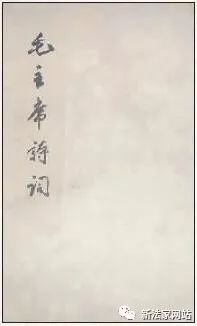 毛主席詩詞
新法家网站